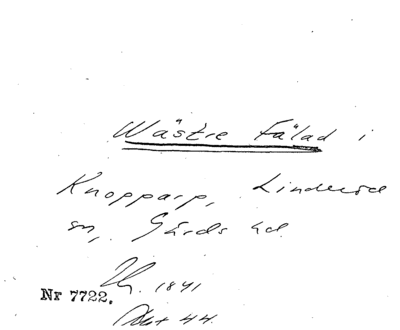 Wästre Fälad i
Knopparp, Linderöd
sn, Gärds hd.
1841
Nr 7722.
Akt 44.